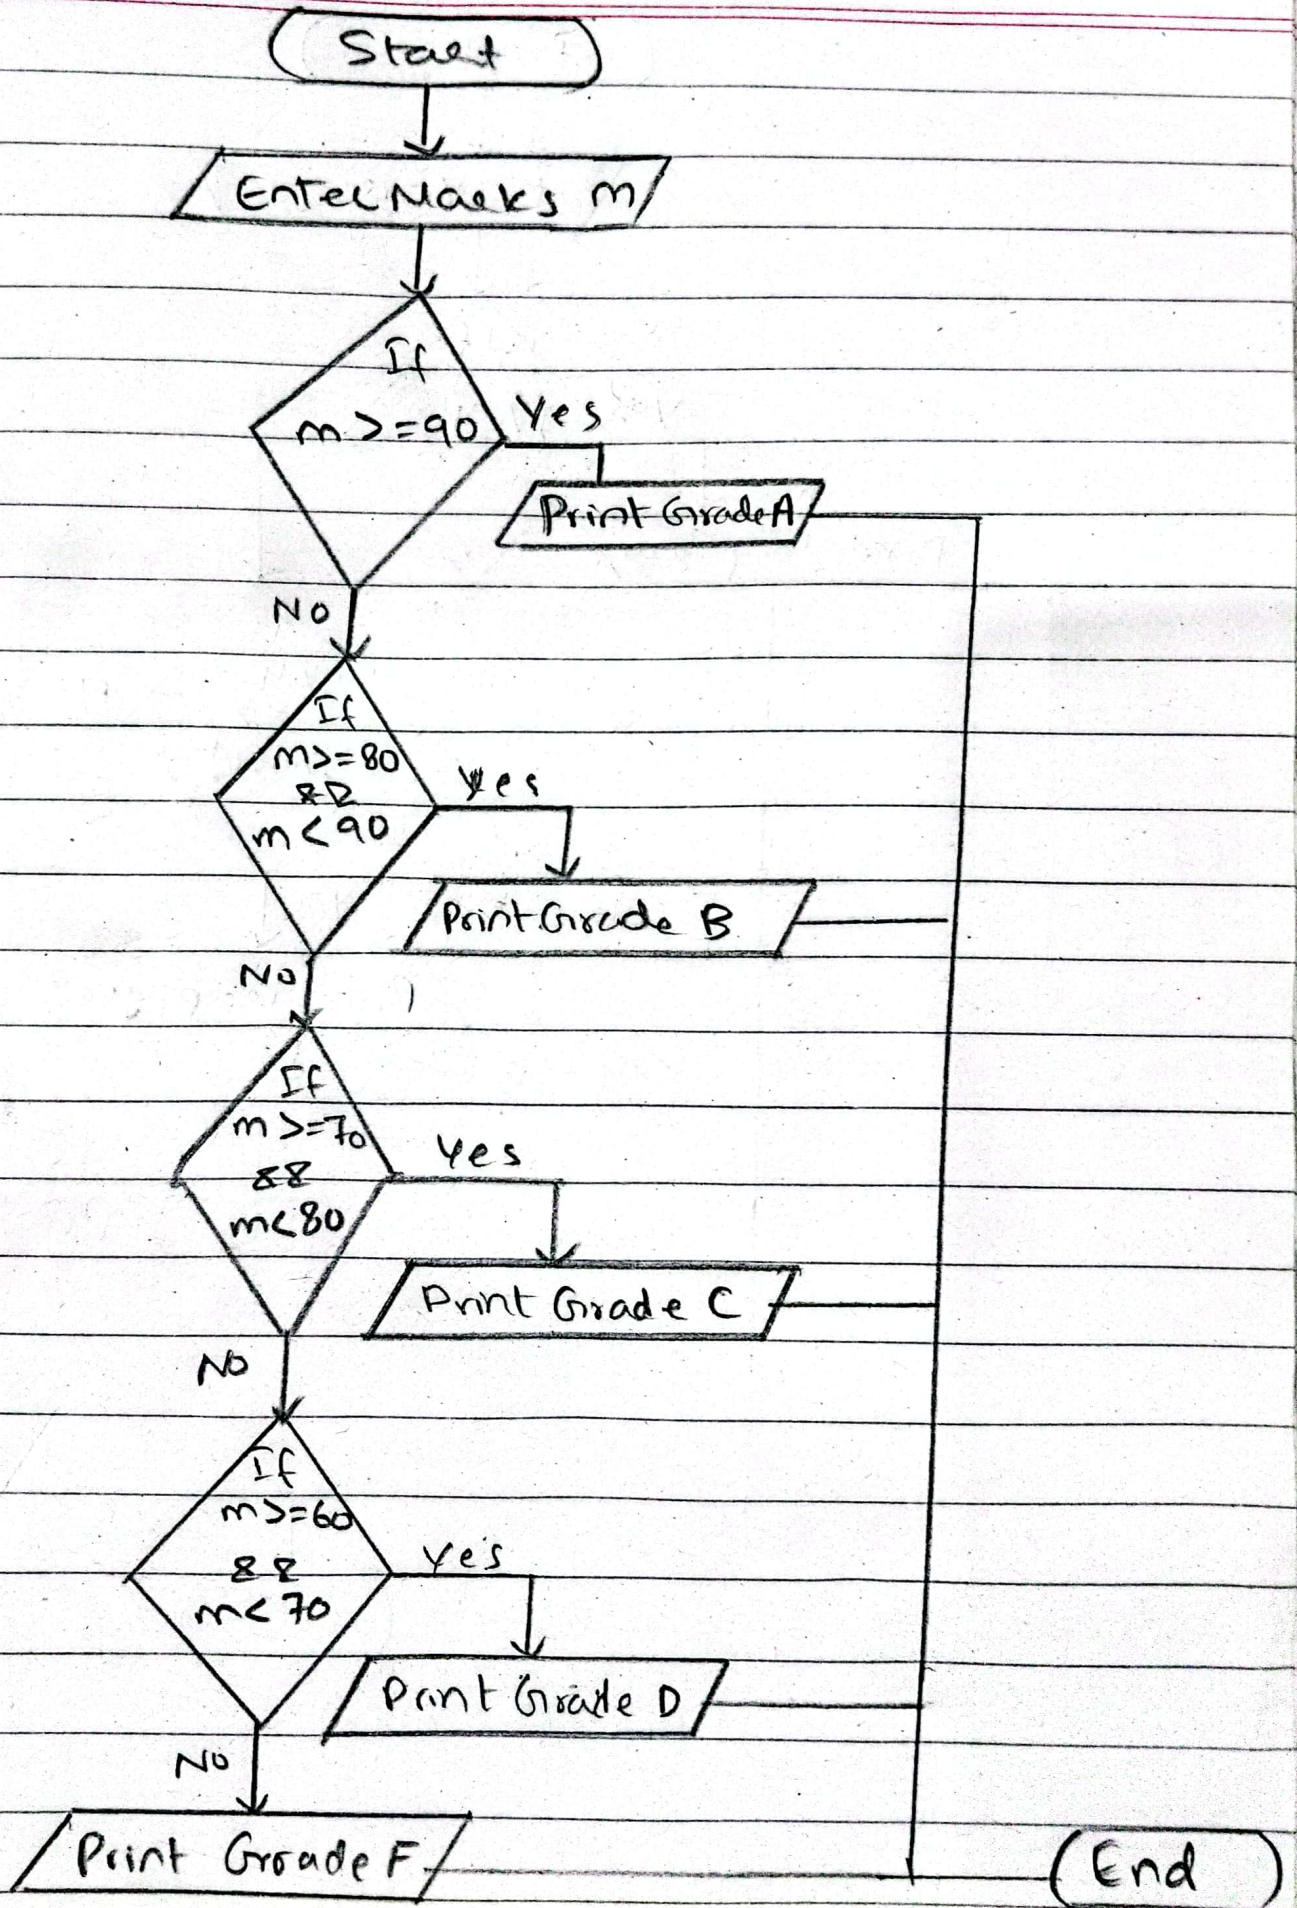 Start
Enter Marks m
If
m >= 90
Yes
Print Grade A
NO
If
m>=80
&&
m < 90
Yes
Print Grade B
NO
If
m >=70
&&
m<80
Yes
Print Grade C
NO
If
m>=60
&&
m< 70
Yes
Print Grade D
NO
Print Grade F
End